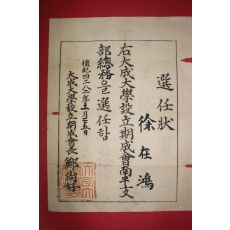 選任狀
徐在鴻
右大成大學設立期成會南平支
部總務으로選任함
檀紀四二八二年十一月二十五日
大成大學設立期成會長 鄭尚好